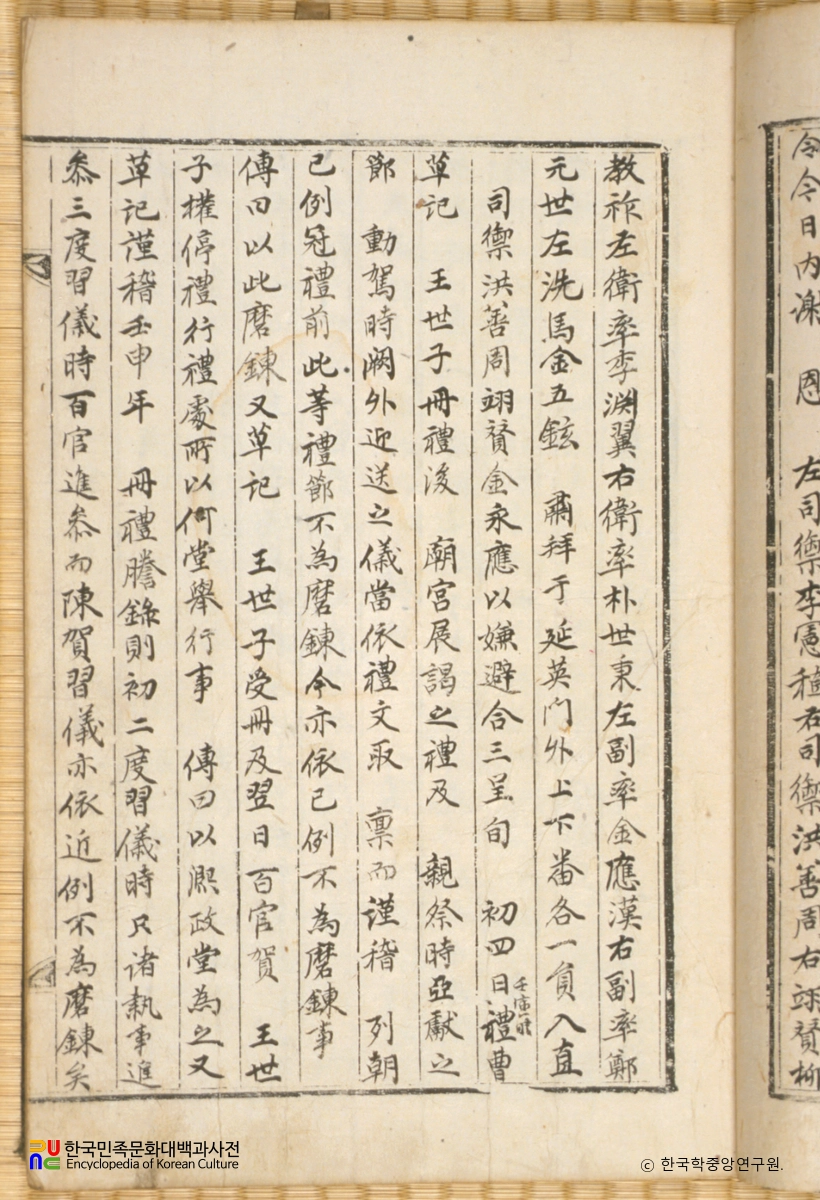 令今日內謝 恩 左司禦李憲稙右司禦洪善周右翊贊柳
教祚左衛率李淵翼右衛率朴世秉左副率金應漢右副率鄭
元世左洗馬金五鉉 肅拜于延英門外上下番各一員入直
司禦洪善周翊贊金永應以嫌避合三呈旬 初四日壬寅晴禮曹
草記 王世子冊禮後 廟宮展謁之禮及 親祭時亞獻之
節 動駕時闕外迎送之儀當依禮文取 稟而謹稽 列朝
已例冠禮前此等禮節不為磨鍊今亦依已例不為磨鍊事
傳曰以此磨鍊又草記 王世子受冊及翌日百官賀 王世
子權停禮行禮處所以何堂舉行事 傳曰以熙政堂為之又
草記謹稽壬申年 冊禮謄錄則初二度習儀時只諸執事進
參三度習儀時百官進參而陳賀習儀亦依近例不為磨鍊矣
한국민족문화대백과사전
Encyclopedia of Korean Culture
ⓒ 한국학중앙연구원.